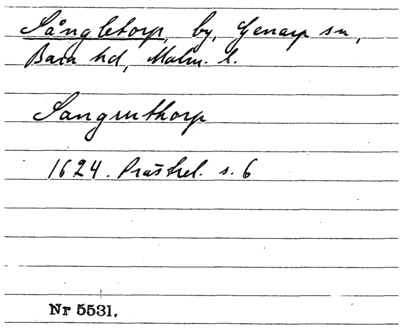 Sångletorp, by, Genarp sn,
Bara hd, Malm. l.
Sangmthorp
1624. Prästrel. s. 6
Nr 5531.